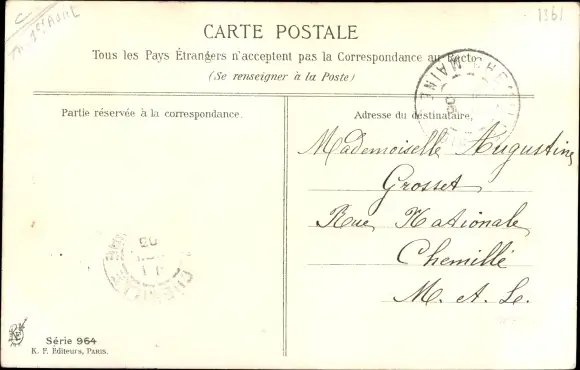 1er Avril
1361
CARTE POSTALE
Tous les Pays Étrangers n'acceptent pas la Correspondance au Recto
(Se renseigner à la Poste)
Partie réservée à la correspondance.
Adresse du destinataire,
Mademoiselle Augustine
Grosset
Rue Nationale
Chemillé
M. et Le.
Série 964
K. F. Éditeurs, PARIS.